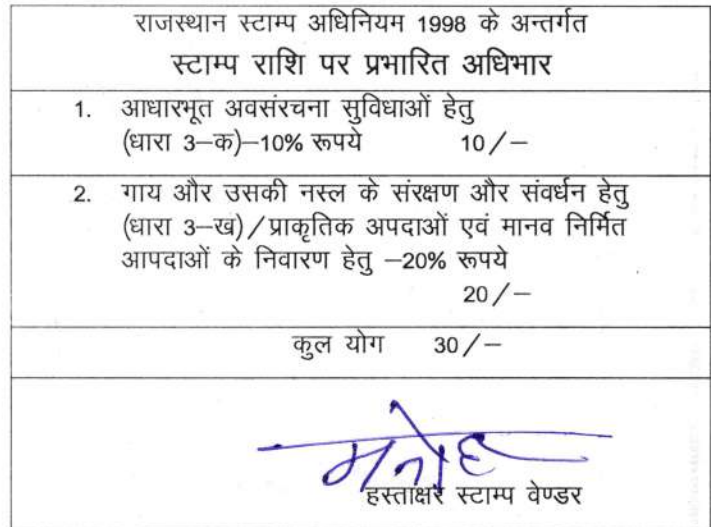 राजस्थान स्टाम्प अधिनियम 1998 के अन्तर्गत
स्टाम्प राशि पर प्रभारित अधिभार
1. आधारभूत अवसंरचना सुविधाओं हेतु
(धारा 3–क)–10% रूपये 10/–
2. गाय और उसकी नस्ल के संरक्षण और संवर्धन हेतु
(धारा 3–ख)/प्राकृतिक अपदाओं एवं मानव निर्मित
आपदाओं के निवारण हेतु –20% रूपये
20/–
कुल योग 30/–
हस्ताक्षर स्टाम्प वेण्डर